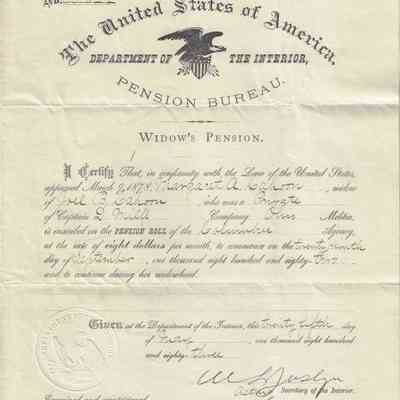 No.
The United States of America,
DEPARTMENT OF THE INTERIOR,
PENSION BUREAU.
WIDOW'S PENSION.
I Certify That, in conformity with the Law of the United States,
approved March 9, 1878, Margaret A. Cahoon, widow
of Joel B. Cahoon, who was a Private
of Captain D. Mill Company, Ohio Militia,
is inscribed on the PENSION ROLL of the Columbus Agency,
at the rate of eight dollars per month, to commence on the twenty ninth
day of September, one thousand eight hundred and eighty-two
and to continue during her widowhood.
Given at the Department of the Interior, this twenty fifth day
of one thousand eight hundred
and eighty-three
M. L. Joslyn
Acting Secretary of the Interior.
Examined and countersigned